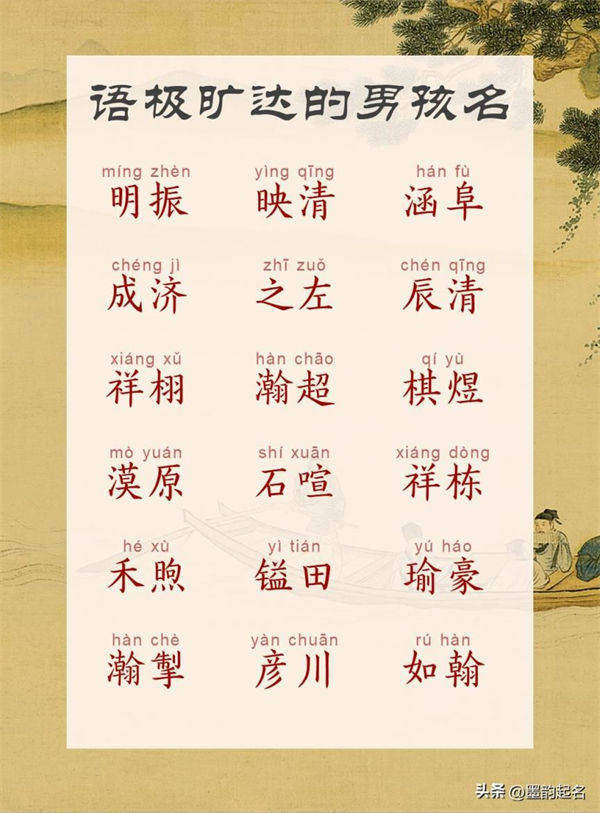 语极旷达的男孩名
míng zhèn yìng qīng hán fù
明振 映清 涵阜
chéng jì zhī zuǒ chén qīng
成济 之左 辰清
xiáng xǔ hàn chāo qí yù
祥栩 瀚超 棋煜
mò yuán shí xuān xiáng dòng
漠原 石喧 祥栋
hé xù yì tián yú háo
禾煦 镒田 瑜豪
hàn chè yàn chuān rú hàn
瀚掣 彦川 如翰
头条 @墨韵起名